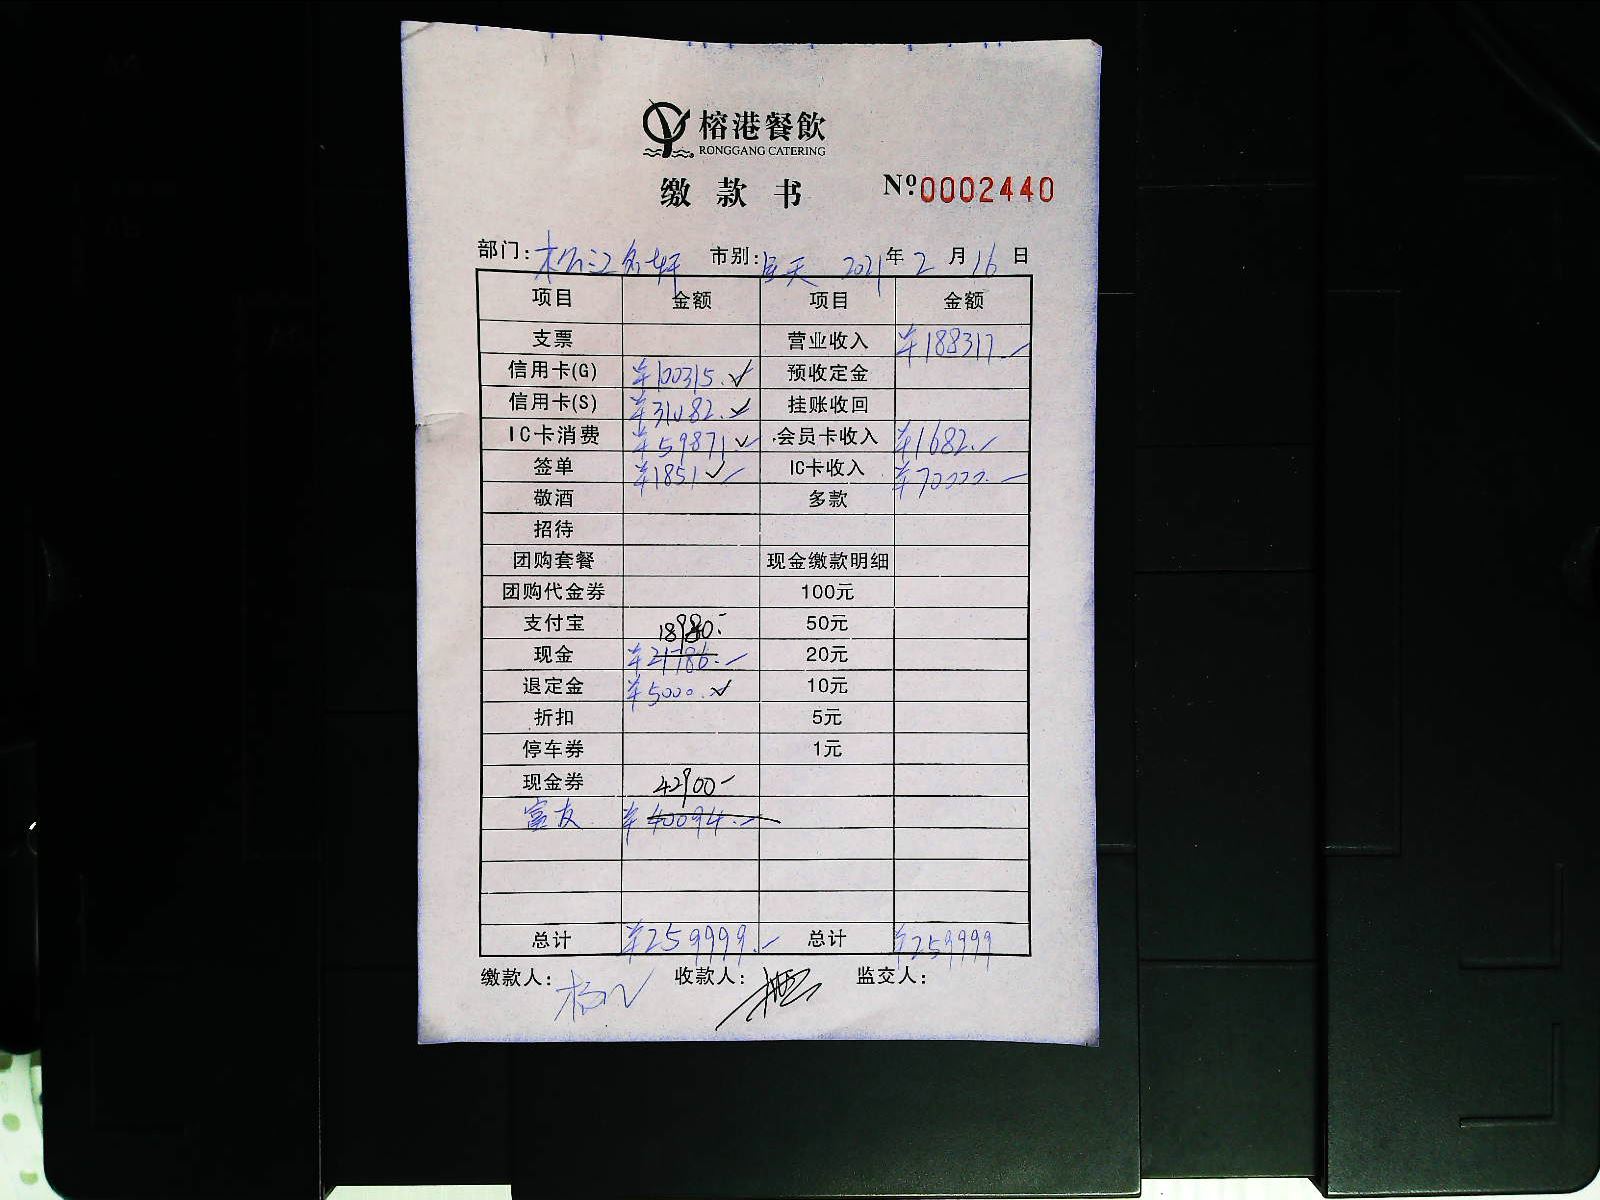 榕港餐飲
RONGGANG CATERING
缴款书 Nº 0002440
部门: 松江名轩 市别: 全天 2021年2月16日
项目 金额 项目 金额
支票 营业收入 ¥188317.-
信用卡(G) ¥100315.✓ 预收定金
信用卡(S) ¥31082.✓ 挂账收回
IC卡消费 ¥59871✓- 会员卡收入 ¥1682.-
签单 ¥1851✓- IC卡收入 ¥70000.-
敬酒 多款
招待
团购套餐 现金缴款明细
团购代金券 100元
支付宝 18980.- 50元
现金 ¥21786.- 20元
退定金 ¥5000.✓ 10元
折扣 5元
停车券 1元
现金券 42900-
富友 ¥40094.-
总计 ¥259999.- 总计 ¥259999
缴款人: 收款人: 监交人: